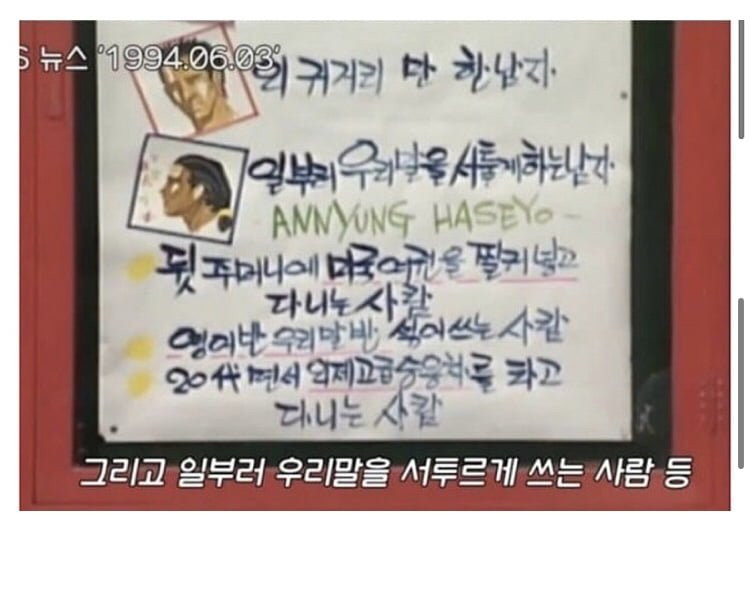 S 뉴스 '1994.06.03'
의 귀걸이 만 한남자.
일부러 우리말을 서툴게하는남자.
ANNYUNG HASEYO -
뒷 주머니에 미국여권을 찔러넣고
다니는 사람
영어반 우리말반 섞어쓰는 사람
20代면서 외제고급승용차를 타고
다니는 사람
그리고 일부러 우리말을 서투르게 쓰는 사람 등